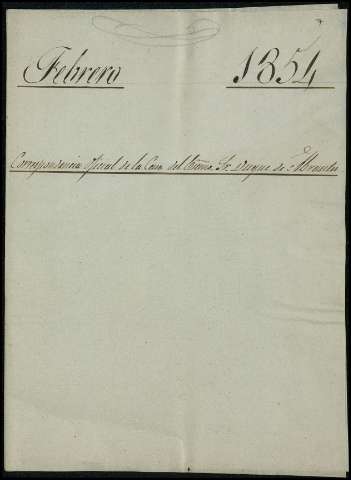 Febrero 1854
Correspondencia oficial de la Casa del Excmo. Sr. Duque de